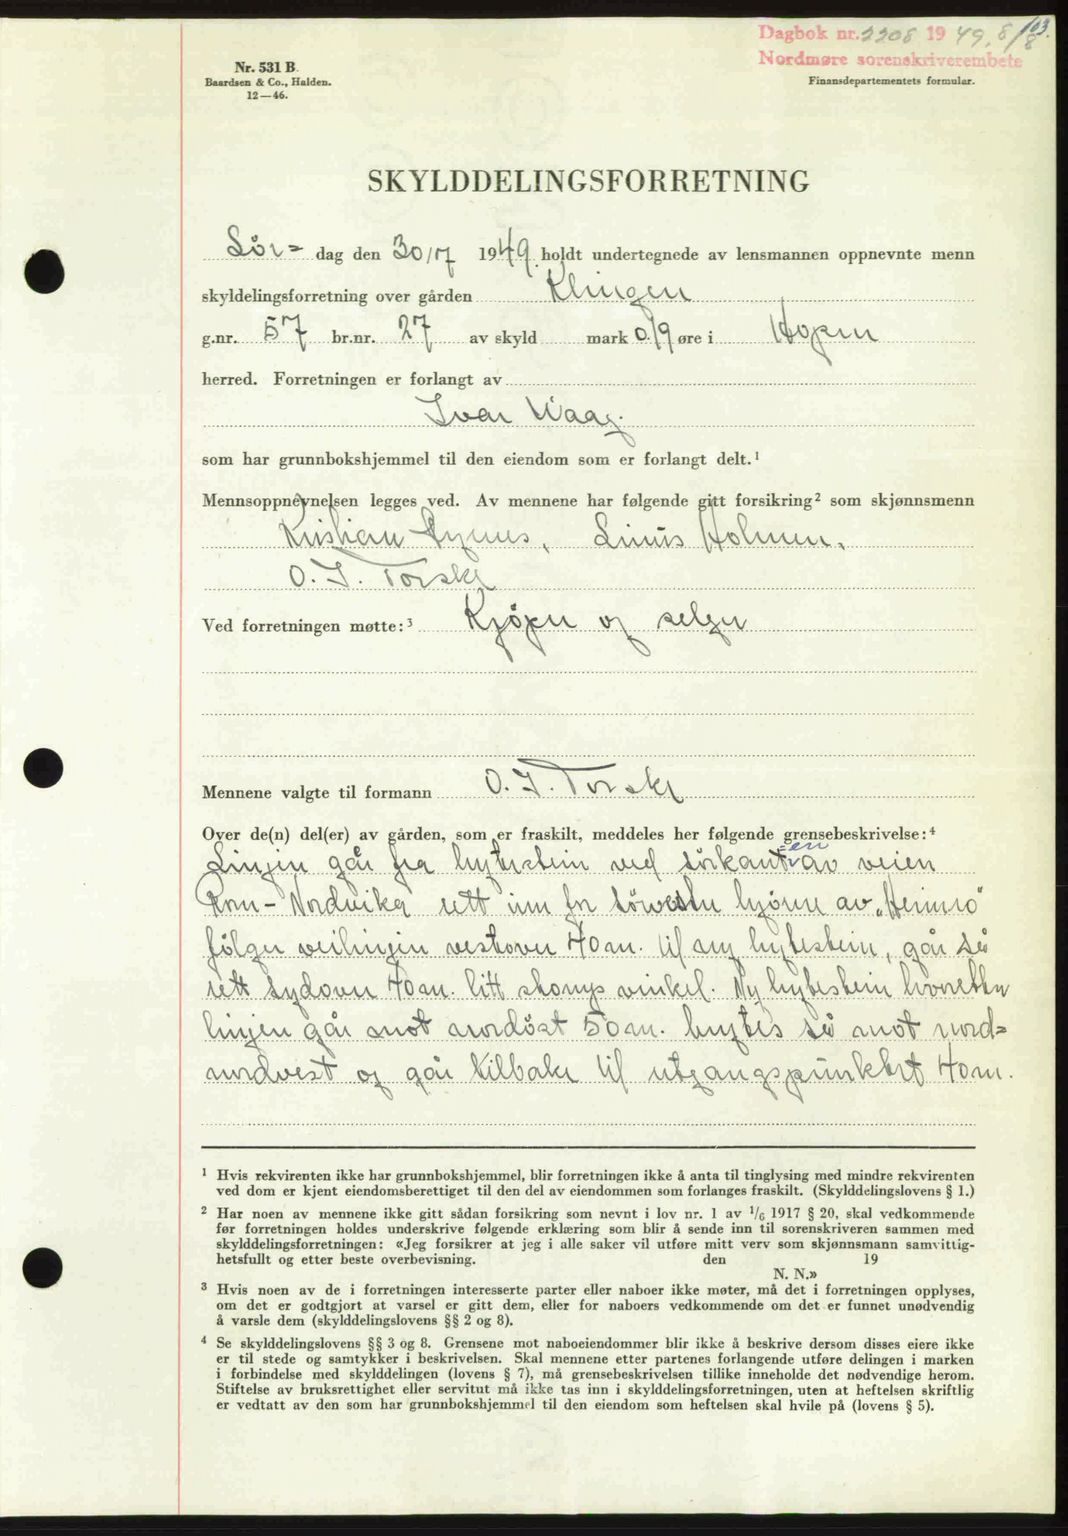 Dagbok nr. 2208 1949, 8/8 103.
Nordmøre sorenskriverembete
Nr. 531 B.
Baardsen & Co., Halden.
12—46.
Finansdepartementets formular.
SKYLDDELINGSFORRETNING
Lør= dag den 30/7 1949 holdt undertegnede av lensmannen oppnevnte menn
skyldelingsforretning over gården Klingen
g.nr. 57 br.nr. 27 av skyld mark 0.19 øre i Hopen
herred. Forretningen er forlangt av
Ivar Waag.
som har grunnbokshjemmel til den eiendom som er forlangt delt.¹
Mennsoppnevnelsen legges ved. Av mennene har følgende gitt forsikring² som skjønnsmenn
Kristian Linus Holmen,
O. J. Torske
Ved forretningen møtte:³ Kjøper og selger
Mennene valgte til formann O. J. Torske
Over de(n) del(er) av gården, som er fraskilt, meddeles her følgende grensebeskrivelse:⁴
Linjen går fra bytestein ved sørkant=en av veien
Rom- Nordvika rett inn for sørvestre hjørne av „Heimro"
følger veilinjen vestover 40 m. til ny bytestein, går så
rett sydover 40 m. litt stomp vinkel. Ny bytestein hvoretter
linjen går mot nordøst 50 m. bøtes så mot nord=
nordvest og går tilbake til utgangspunktet 40 m.
¹ Hvis rekvirenten ikke har grunnbokshjemmel, blir forretningen ikke å anta til tinglysing med mindre rekvirenten
ved dom er kjent eiendomsberettiget til den del av eiendommen som forlanges fraskilt. (Skylddelingslovens § 1.)
² Har noen av mennene ikke gitt sådan forsikring som nevnt i lov nr. 1 av 1/6 1917 § 20, skal vedkommende
før forretningen holdes underskrive følgende erklæring som blir å sende inn til sorenskriveren sammen med
skylddelingsforretningen: «Jeg forsikrer at jeg i alle saker vil utføre mitt verv som skjønnsmann samvittig-
hetsfullt og etter beste overbevisning. den 19
N. N.»
³ Hvis noen av de i forretningen interesserte parter eller naboer ikke møter, må det i forretningen opplyses,
om det er godtgjort at varsel er gitt dem, eller for naboers vedkommende om det er funnet unødvendig
å varsle dem (skylddelingslovens §§ 2 og 8).
⁴ Se skylddelingslovens §§ 3 og 8. Grensene mot naboeiendommer blir ikke å beskrive dersom disses eiere ikke
er til stede og samtykker i beskrivelsen. Skal mennene etter partenes forlangende utføre delingen i marken
i forbindelse med skylddelingen (lovens § 7), må grensebeskrivelsen tillike inneholde det nødvendige herom.
Stiftelse av bruksrettighet eller servitut må ikke tas inn i skylddelingsforretningen, uten at heftelsen skriftlig
er vedtatt av den som har grunnbokshjemmel til den eiendom som heftelsen skal hvile på (lovens § 5).